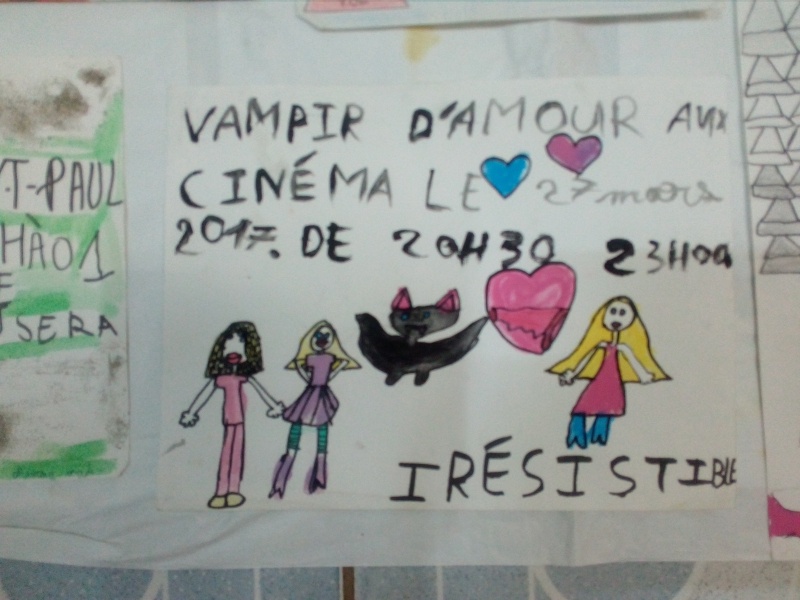 VAMPIR D'AMOUR AUX
CINÉMA LE 27 mars
2017. DE 20H30 23H00
IRÉSISTIBLE
T-PAUL
HÀO1
E
SERA